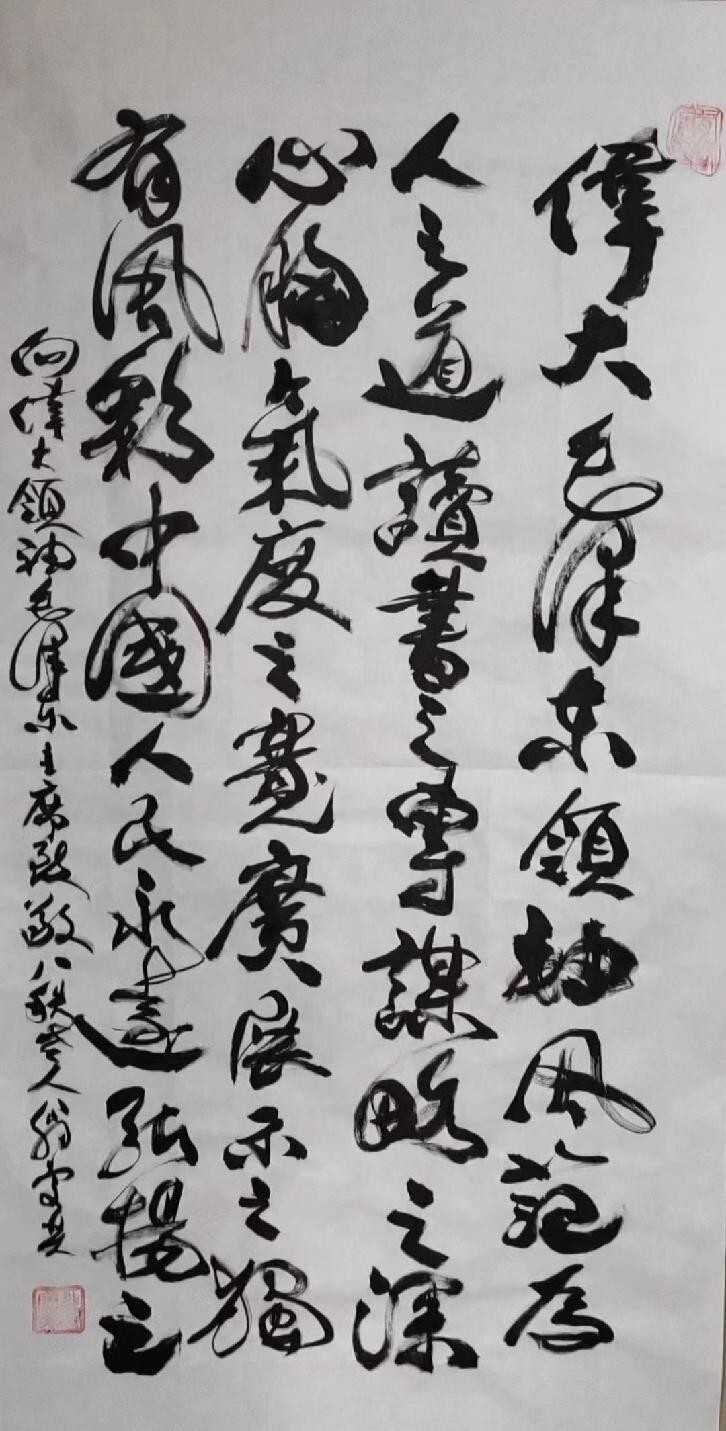 偉大毛澤东領袖风范为
人之道讀書之專謀略之深
心胸氣度之寬廣展示之獨
有风彩中國人民永遠弘揚之
向偉大領袖毛澤东主席致敬八秩老人翁